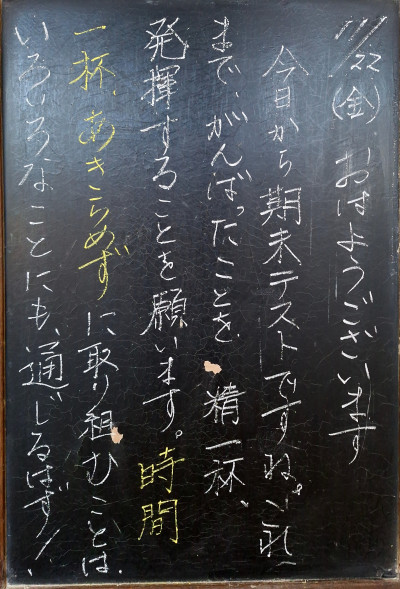 11/22(金) おはようございます
今日から期末テストですね。これ
まで、がんばったことを、精一杯、
発揮することを願います。時間
一杯、あきらめずに取り組むことは、
いろいろなことにも、通じるはず!!